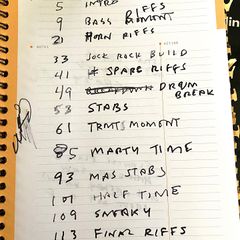 5 INTRO
RIFFS
9 BASS MOMENT
21 HORN RIFFS
NOTES
33 JOCK ROCK BUILD
41 # SPARE RIFFS
49 DRUM BREAK
53 STABS
61 TRMTS MOMENT
85 MARTY TIME
93 MAS STABS
101 HALF TIME
109 SNEAKY
113 FINAL RIFFS